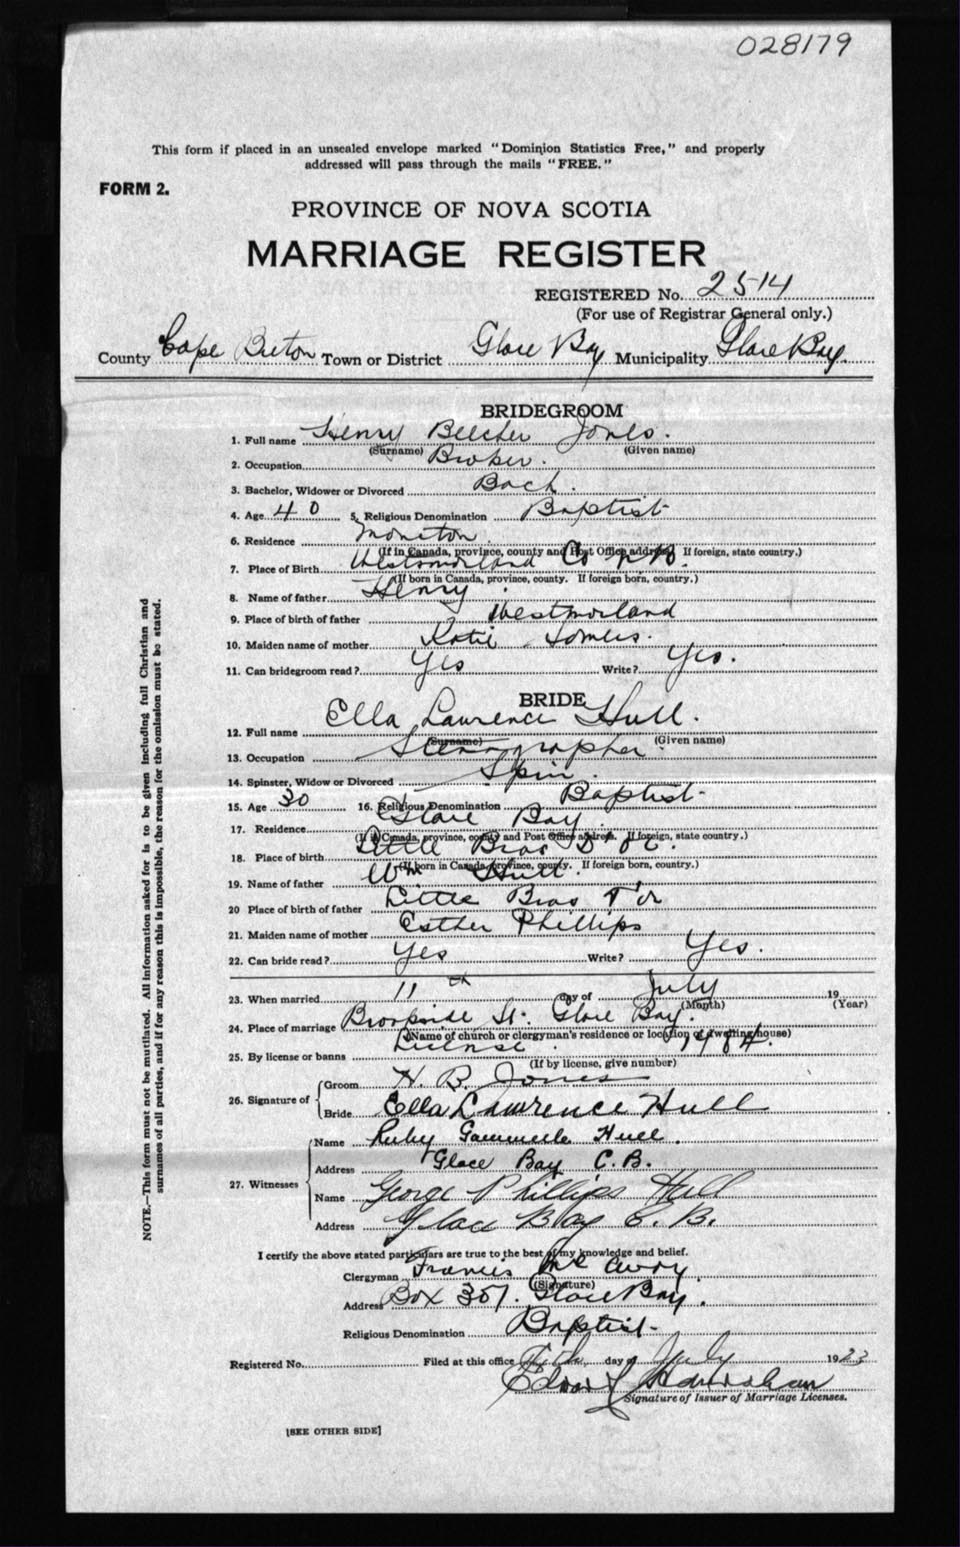 028179
This form if placed in an unsealed envelope marked "Dominion Statistics Free," and properly
addressed will pass through the mails "FREE."
FORM 2.
PROVINCE OF NOVA SCOTIA
MARRIAGE REGISTER
REGISTERED No. 2514
(For use of Registrar General only.)
County Cape Breton Town or District Glace Bay Municipality Glace Bay.
BRIDEGROOM
1. Full name Henry Beecher Jones.
(Surname) (Given name)
2. Occupation Broker.
3. Bachelor, Widower or Divorced Bach.
4. Age 40 5. Religious Denomination Baptist
6. Residence Moncton
(If in Canada, province, county and Post Office address. If foreign, state country.)
7. Place of Birth Westmorland Co N.B.
(If born in Canada, province, county. If foreign born, country.)
8. Name of father Henry
9. Place of birth of father Westmorland
10. Maiden name of mother Katie Somers.
11. Can bridegroom read? Yes Write? Yes.
BRIDE
12. Full name Ella Lawrence Hull.
(Surname) (Given name)
13. Occupation Stenographer
14. Spinster, Widow or Divorced Spin.
15. Age 30 16. Religious Denomination Baptist
17. Residence Glace Bay
(If in Canada, province, county and Post Office address. If foreign, state country.)
18. Place of birth Little Bras D'or.
(If born in Canada, province, county. If foreign born, country.)
19. Name of father Wm Hull.
20 Place of birth of father Little Bras D'or
21. Maiden name of mother Esther Phillips
22. Can bride read? Yes Write? Yes.
23. When married 11th day of July 19
(Month) (Year)
24. Place of marriage Brookside St. Glace Bay.
(Name of church or clergyman's residence or location of dwelling house)
25. By license or banns License.
(If by license, give number)
26. Signature of Groom H. B. Jones
Bride Ella Lawrence Hull
27. Witnesses Name Ruby Hull.
Address Glace Bay C.B.
Name George Phillips Hull
Address Glace Bay C.B.
I certify the above stated particulars are true to the best of my knowledge and belief.
Clergyman Francis McAvoy
(Signature)
Address Box 357. Glace Bay.
Religious Denomination Baptist
Registered No. Filed at this office day of July 1923
Signature of Issuer of Marriage Licenses.
[SEE OTHER SIDE]
NOTE.—This form must not be mutilated. All information asked for is to be given including full Christian and
surnames of all parties, and if for any reason this is impossible, the reason for the omission must be stated.